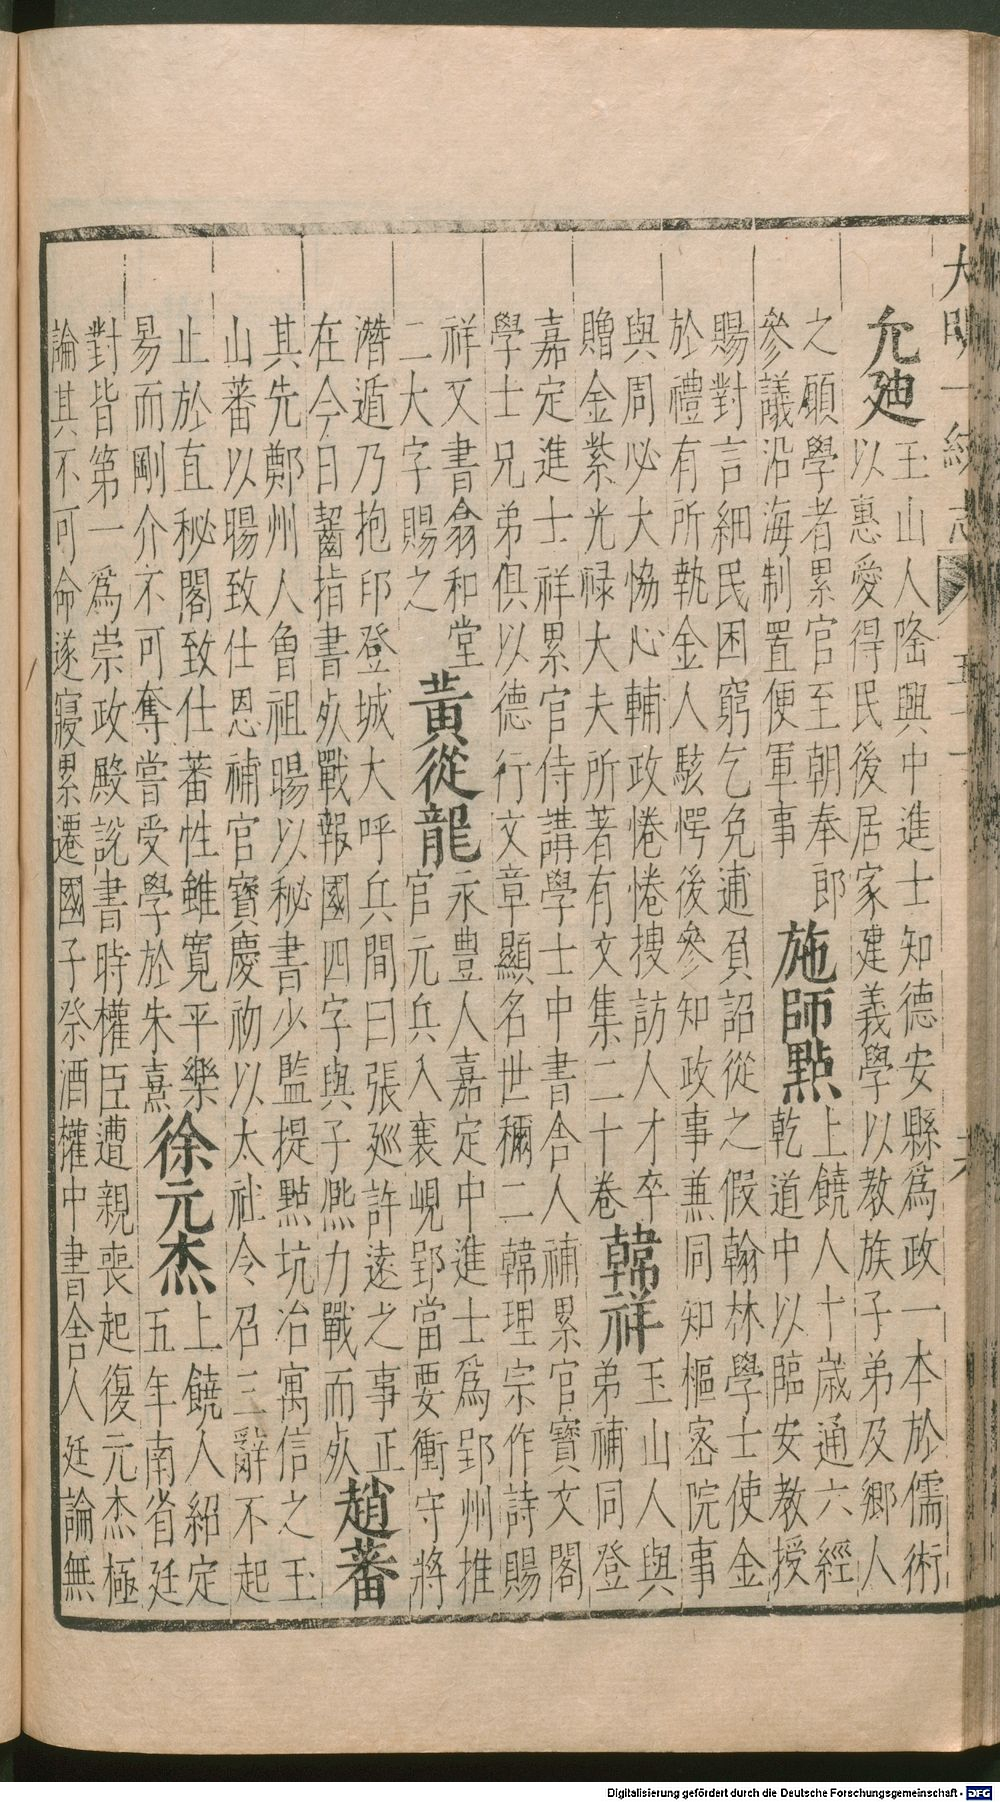 大明一統志 五十一 六
允廸 玉山人隆興中進士知德安縣爲政一本於儒術
以惠愛得民後居家建義學以教族子弟及鄉人
之願學者累官至朝奉郎
參議沿海制置便軍事
施師點 上饒人十歲通六經
乾道中以臨安教授
賜對言細民困窮乞免逋負詔從之假翰林學士使金
於禮有所執金人駭愕後參知政事兼同知樞宻院事
與周必大恊心輔政惓惓搜訪人才卒
贈金紫光禄大夫所著有文集二十卷
韓祥 玉山人與
弟補同登
嘉定進士祥累官侍講學士中書舎人補累官寶文閣
學士兄弟俱以德行文章顯名世稱二韓理宗作詩賜
祥又書翕和堂
二大字賜之
黃從龍 永豊人嘉定中進士爲郢州推
官元兵入襄峴郢當要衝守將
濳遁乃抱印登城大呼兵間曰張廵許逺之事正
在今日齧指書㱠戰報國四字與子凞力戰而㱠
趙蕃
其先鄭州人魯祖暘以秘書少監提點坑冶寓信之玉
山蕃以暘致仕恩補官寶慶初以太社令召三辭不起
止於直秘閣致仕蕃性雖寛平樂
易而剛介不可奪嘗受學於朱熹
徐元杰 上饒人紹定
五年南省廷
對皆第一爲崇政殿說書時權臣遭親喪起復元杰極
論其不可命遂寢累遷國子祭酒權中書舎人廷論無
Digitalisierung gefördert durch die Deutsche Forschungsgemeinschaft - DFG